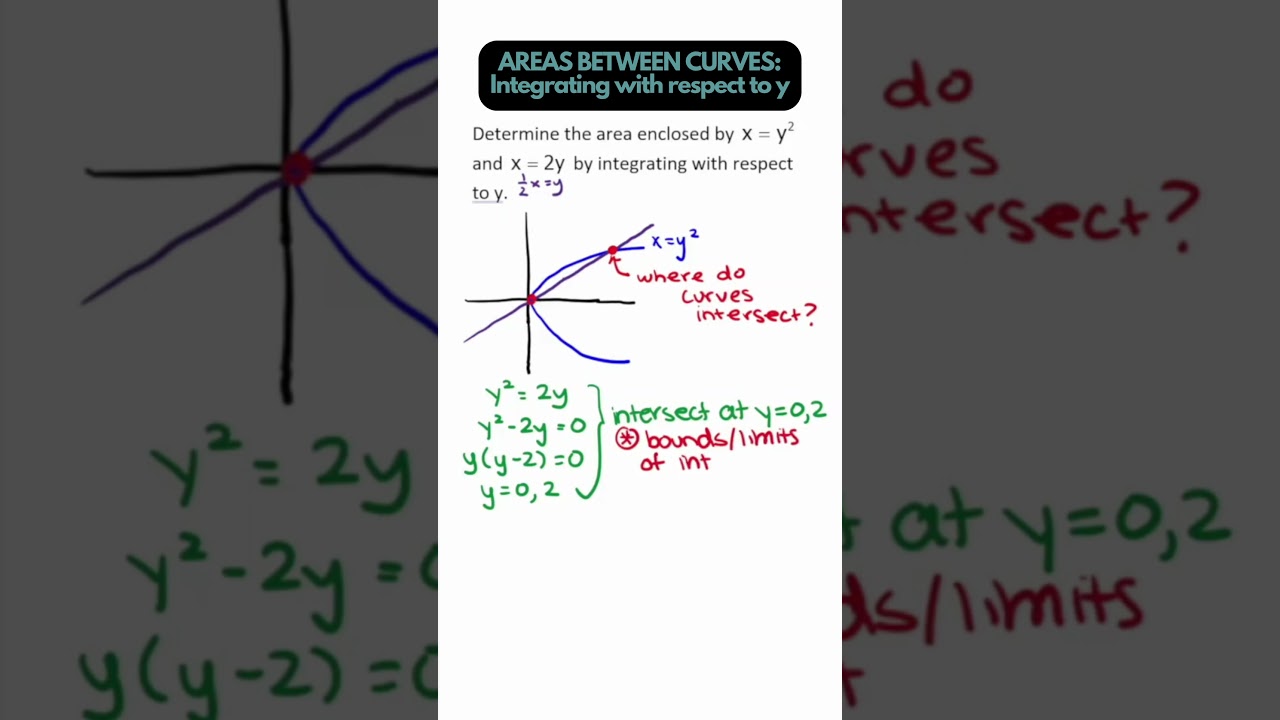 AREAS BETWEEN CURVES:
Integrating with respect to y
Determine the area enclosed by x = y²
and x = 2y by integrating with respect
to y. ½x=y
x=y²
where do
curves
intersect?
y² = 2y
y²-2y=0
y(y-2)=0
y=0,2
intersect at y=0,2
⊛ bounds/limits
of int
do
rves
ntersect?
y² = 2y
y²-2y =
y(y-2)=
at y=0,2
ds/limits